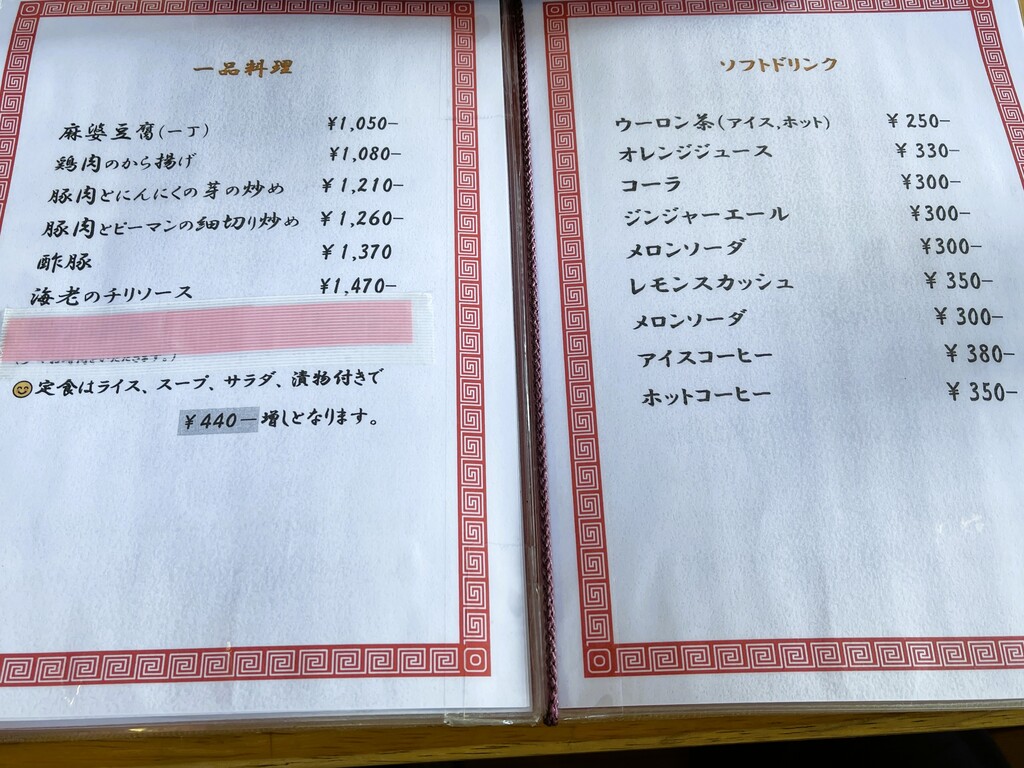 一品料理
麻婆豆腐(一丁) ¥1,050−
鶏肉のから揚げ ¥1,080−
豚肉とにんにくの芽の炒め ¥1,210−
豚肉とピーマンの細切り炒め ¥1,260−
酢豚 ¥1,370
海老のチリソース ¥1,470−
定食はライス、スープ、サラダ、漬物付きで
¥440−増しとなります。
ソフトドリンク
ウーロン茶(アイス,ホット) ¥250−
オレンジジュース ¥330−
コーラ ¥300−
ジンジャーエール ¥300−
メロンソーダ ¥300−
レモンスカッシュ ¥350−
メロンソーダ ¥300−
アイスコーヒー ¥380−
ホットコーヒー ¥350−